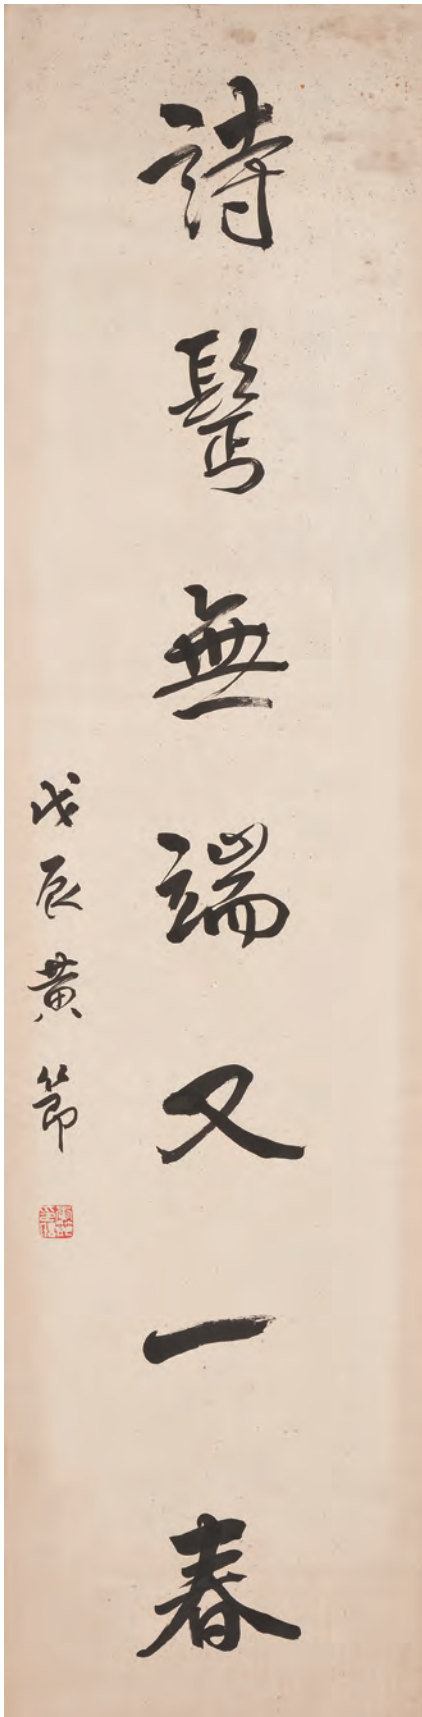 詩鬢無端又一春
戊辰黃節